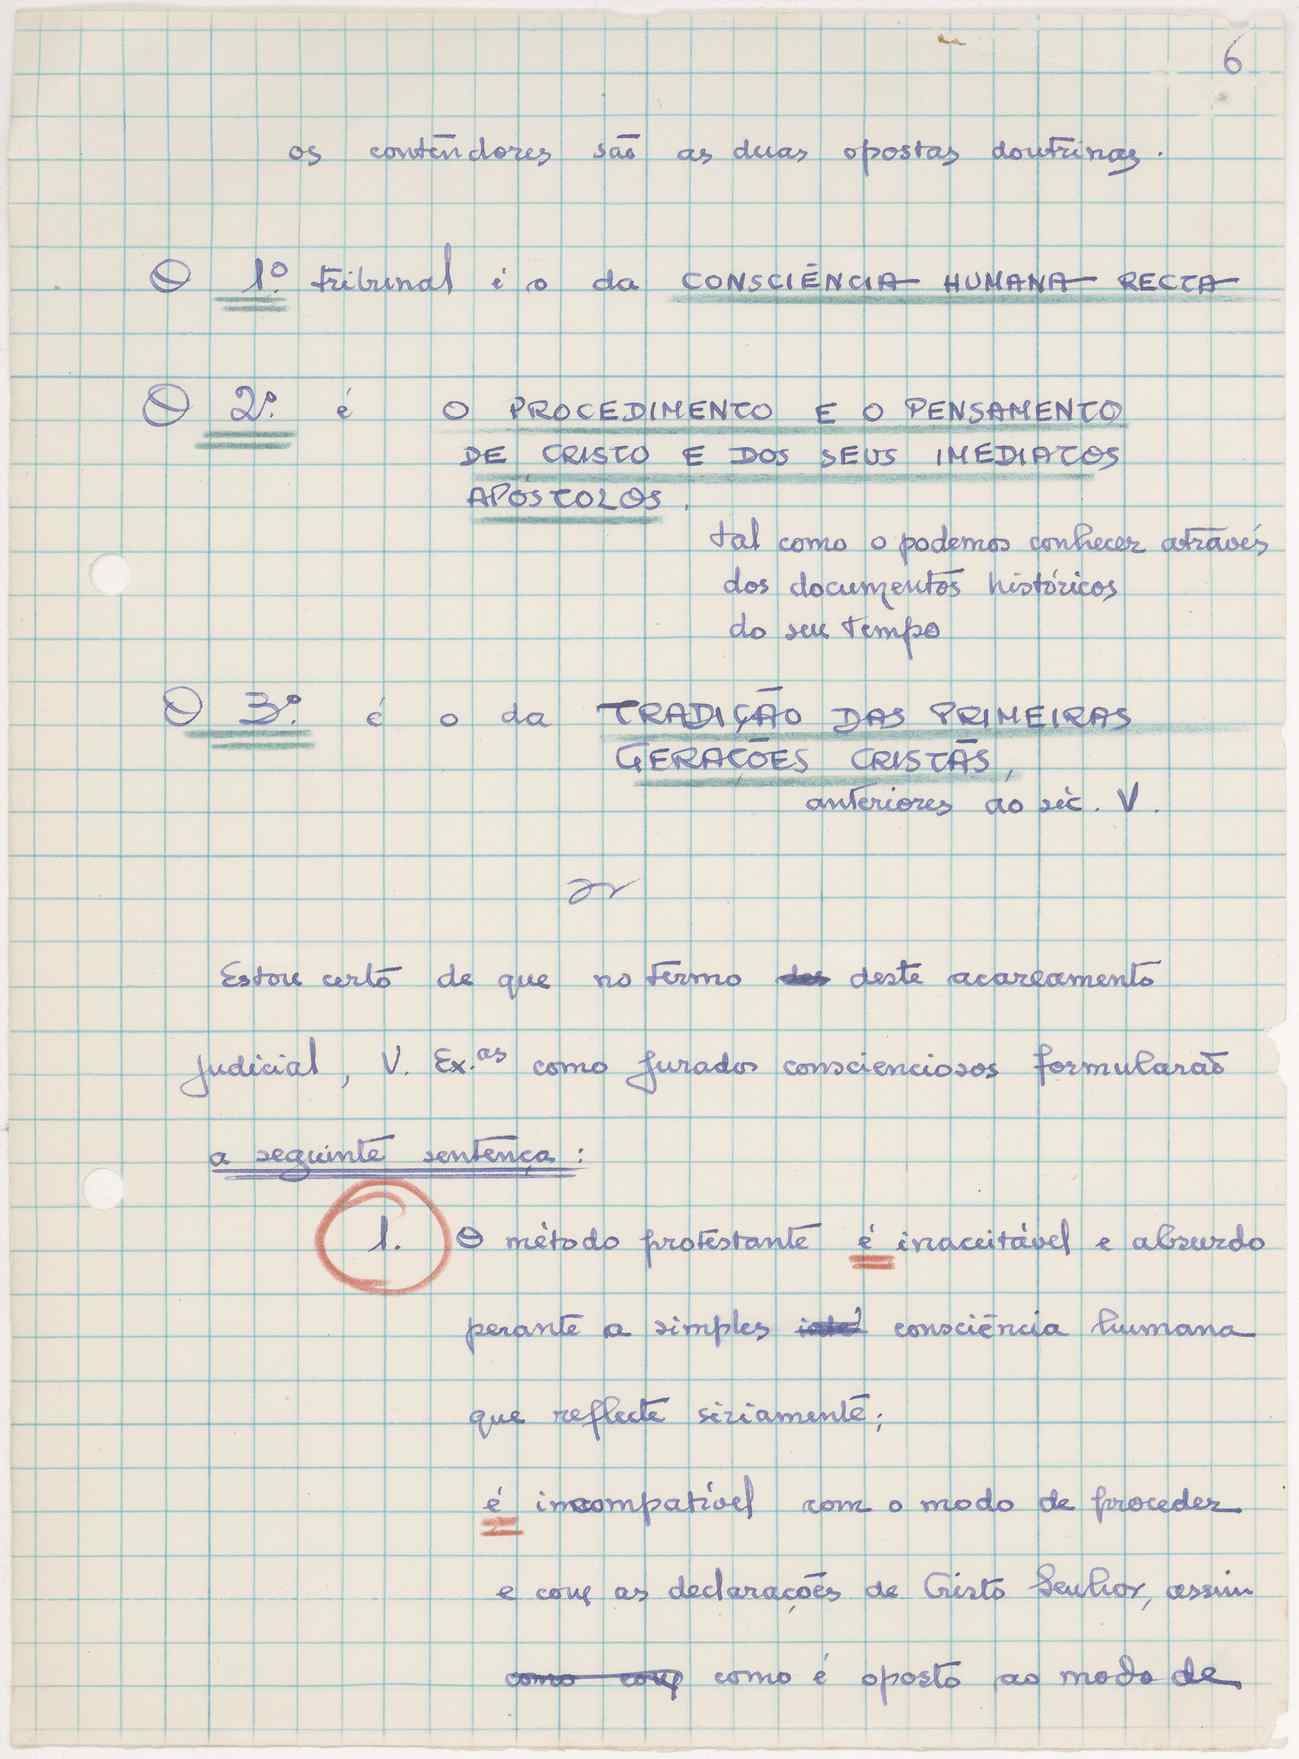 6
os contendores são as duas opostas doutrinas.
O 1.º tribunal é o da CONSCIÊNCIA HUMANA RECTA
O 2.º é O PROCEDIMENTO E O PENSAMENTO
DE CRISTO E DOS SEUS IMEDIATOS
APÓSTOLOS,
tal como o podemos conhecer através
dos documentos históricos
do seu tempo
O 3.º é o da TRADIÇÃO DAS PRIMEIRAS
GERAÇÕES CRISTÃS,
anteriores ao séc. V.
Estou certo de que no termo des deste acareamento
judicial, V. Ex.as como jurados conscienciosos formularão
a seguinte sentença:
1. O método protestante é inaceitável e absurdo
perante a simples consciência humana
que reflecte sèriamente;
é incompatível com o modo de proceder
e com as declarações de Cristo Senhor, assim
como com como é oposto ao modo de